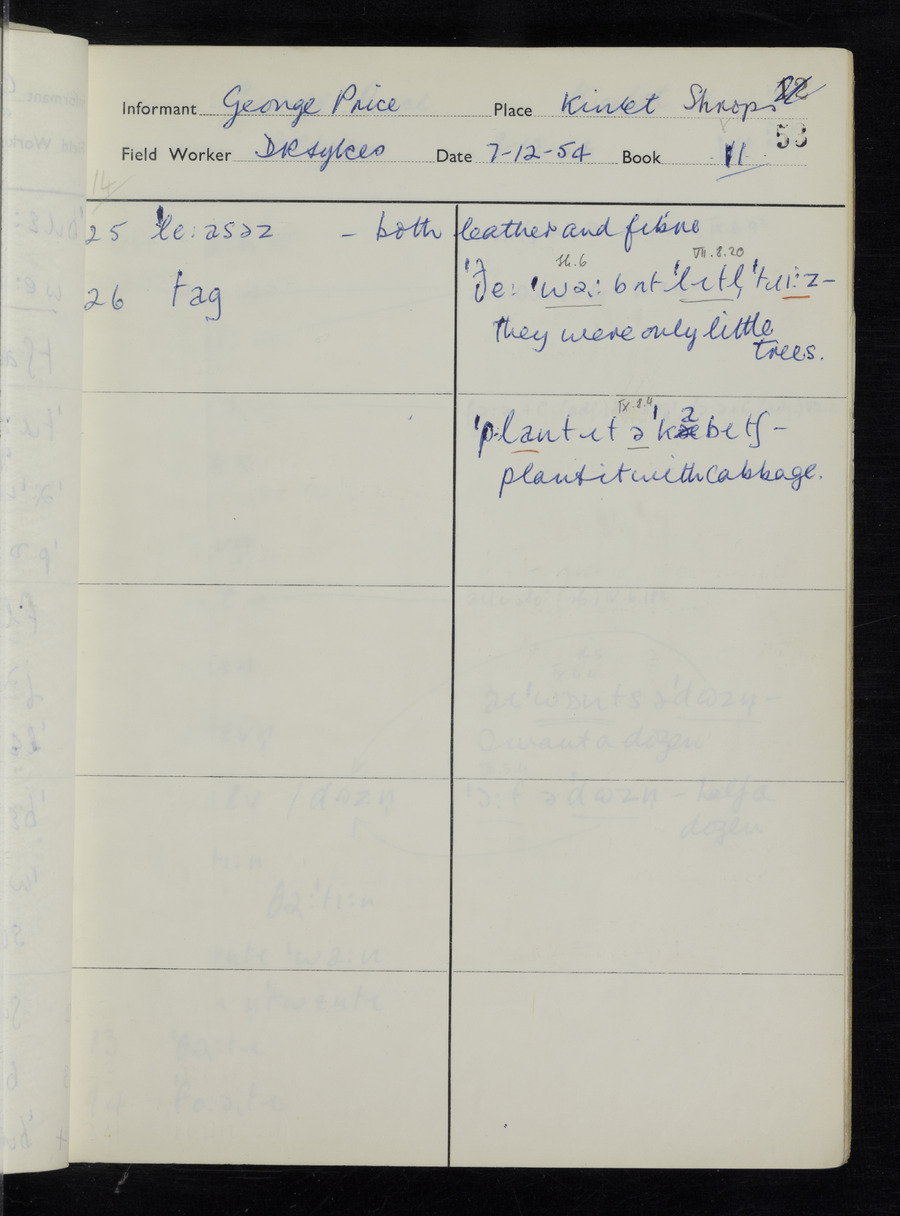 Informant George Price Place Kinlet Shrops
53
Field Worker DR Sykes Date 7-12-54 Book VI
14
25 ˈle:əsəz – both leather and fibre
VII.8.20
26 tag ˈðe: ˈwə: bnt ˈlɪtl̩ ˈtɹi:z –
they were only little
trees.
IX.8.4
ˈplant ɪt ə ˈkabɪtʃ –
plant it with cabbage.